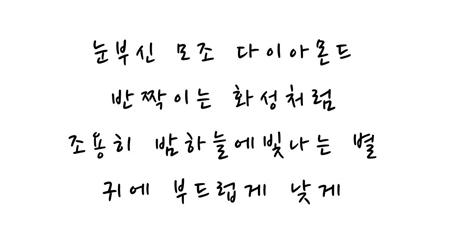 눈부신 모조 다이아몬드
반짝이는 화성처럼
조용히 밤하늘에빛나는 별
귀에 부드럽게 낮게